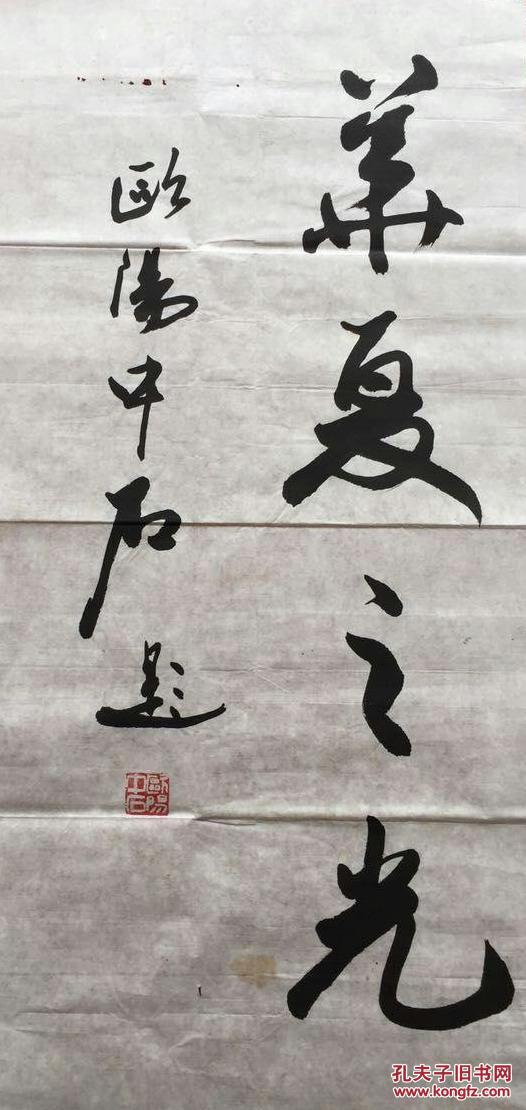 華夏之光
歐陽中石題
歐陽中石
孔夫子旧书网
www.kongfz.com